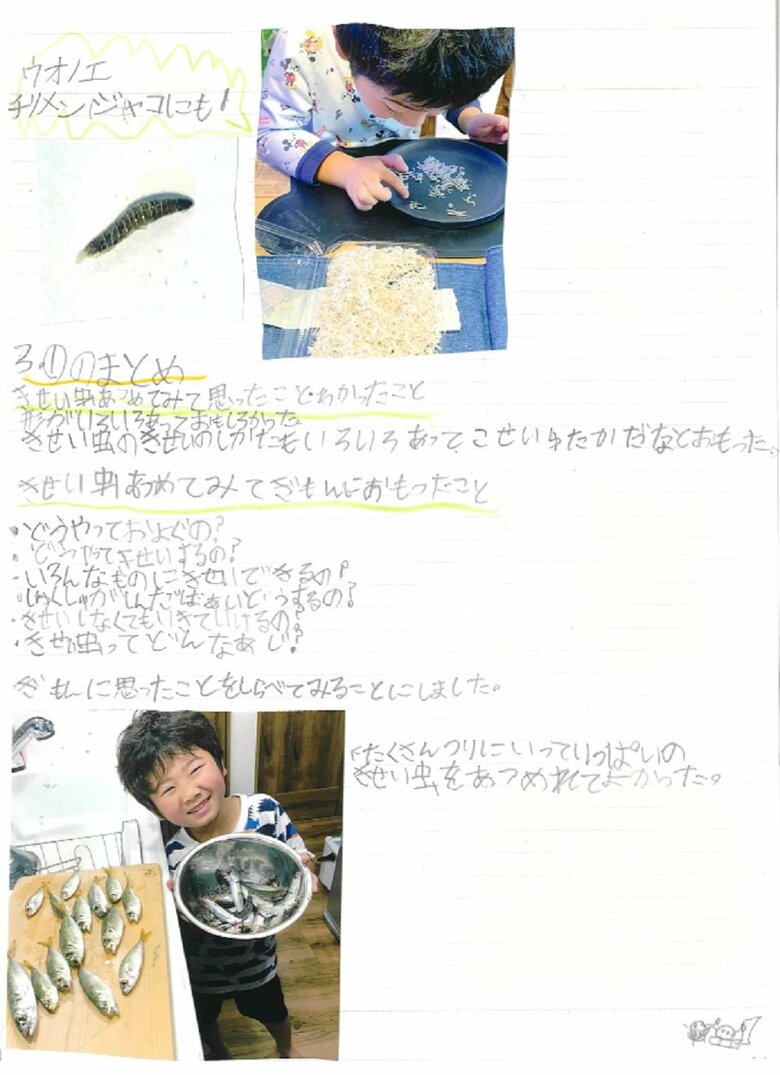 ウオノエ
チリメンジャコにも!
3①のまとめ
きせい虫あつめてみて思ったこと・わかったこと
形がいろいろあっておもしろかった。
きせい虫のきせいのしかたもいろいろあってこせいゆたかだなとおもった。
きせい虫あつめてみてぎもんにおもったこと
・どうやっておよぐの?
・どうやってきせいするの?
・いろんなものにきせいできるの?
・しゅくしゅがしんだばあいどうするの?
・きせいしなくてもいきていけるの?
・きせい虫ってどんなあじ?
ぎもんに思ったことをしらべてみることにしました。
たくさんつりにいっていっぱいの
きせい虫をあつめれてよかった。